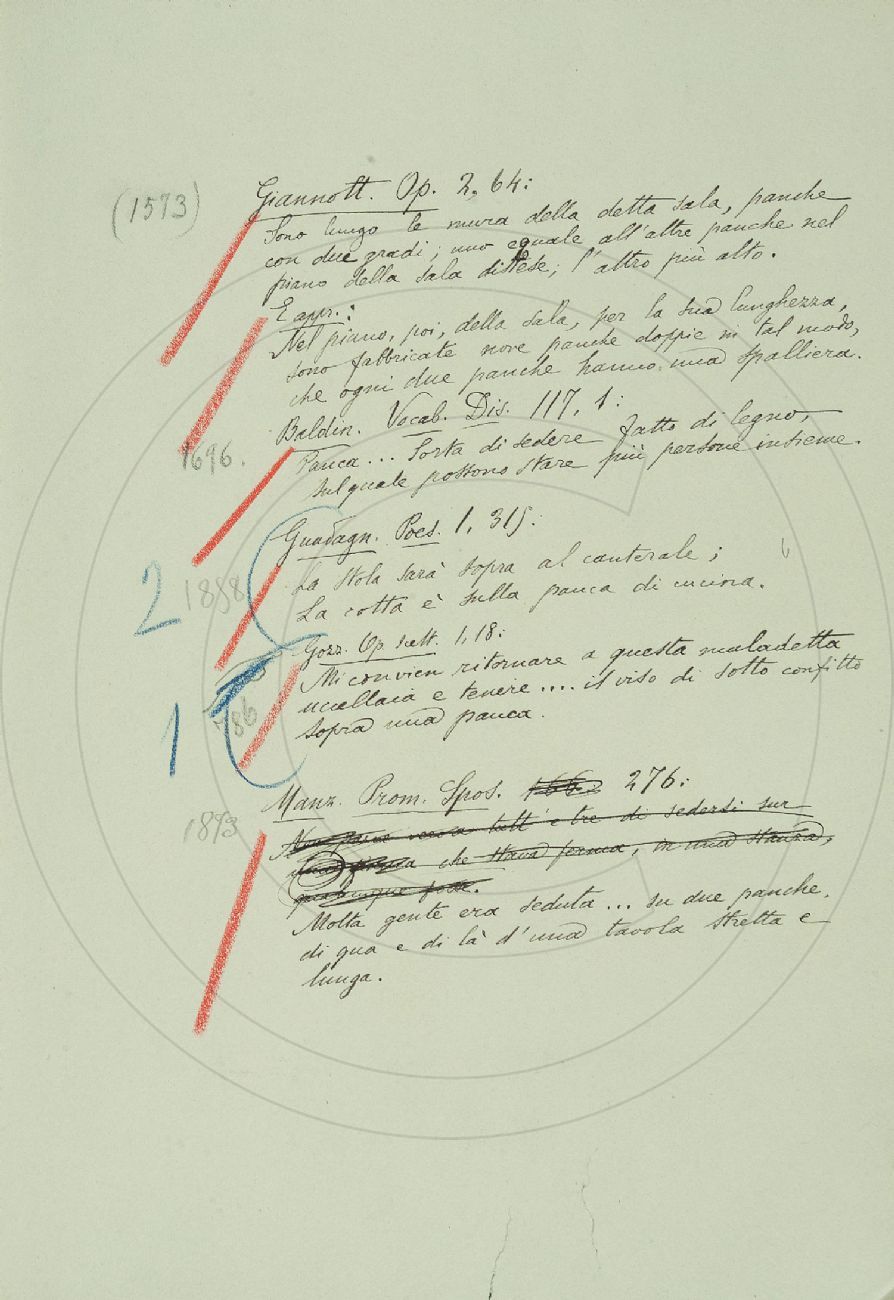 (1573)
Giannott. Op. 2, 64:
Sono lungo le mura della detta sala, panche
con due gradi; uno eguale all'altre panche nel
piano della sala distese; l'altro più alto.
E appr.:
Nel piano, poi, della sala, per la sua lunghezza,
sono fabbricate nove panche doppie in tal modo,
che ogni due panche hanno una spalliera.
Baldin. Vocab. Dis. 117, 1:
1696.
Panca... Sorta di sedere fatto di legno,
sul quale possono stare più persone insieme.
Guadagn. Poes. 1, 315:
2
1858
La stola sarà sopra al canterale;
La cotta è sulla panca di cucina.
Gozz. Op. scelt. 1, 18:
1
786
Mi convien ritornare a questa maladetta
uccellaia e tenere.... il viso di sotto confitto
sopra una panca.
Manz. Prom. Spos. 276:
1893
tutt'e tre di sedersi sur
che stava ferma, in una stanza,
qualunque fosse.
Molta gente era seduta... su due panche,
di qua e di là d'una tavola stretta e
lunga.